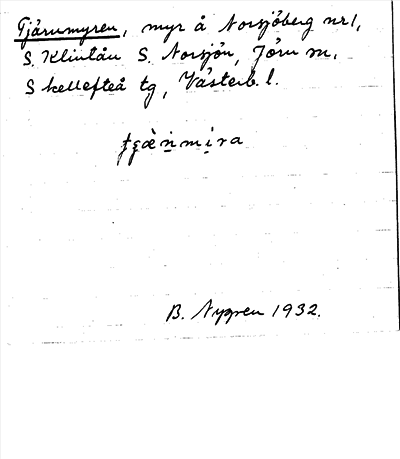 Tjärumyren, myr å Norsjöberg nr 1,
S. Klintån S. Norsjön, Jörn sn,
Skellefteå tg, Västerb. l.
B. Nygren 1932.